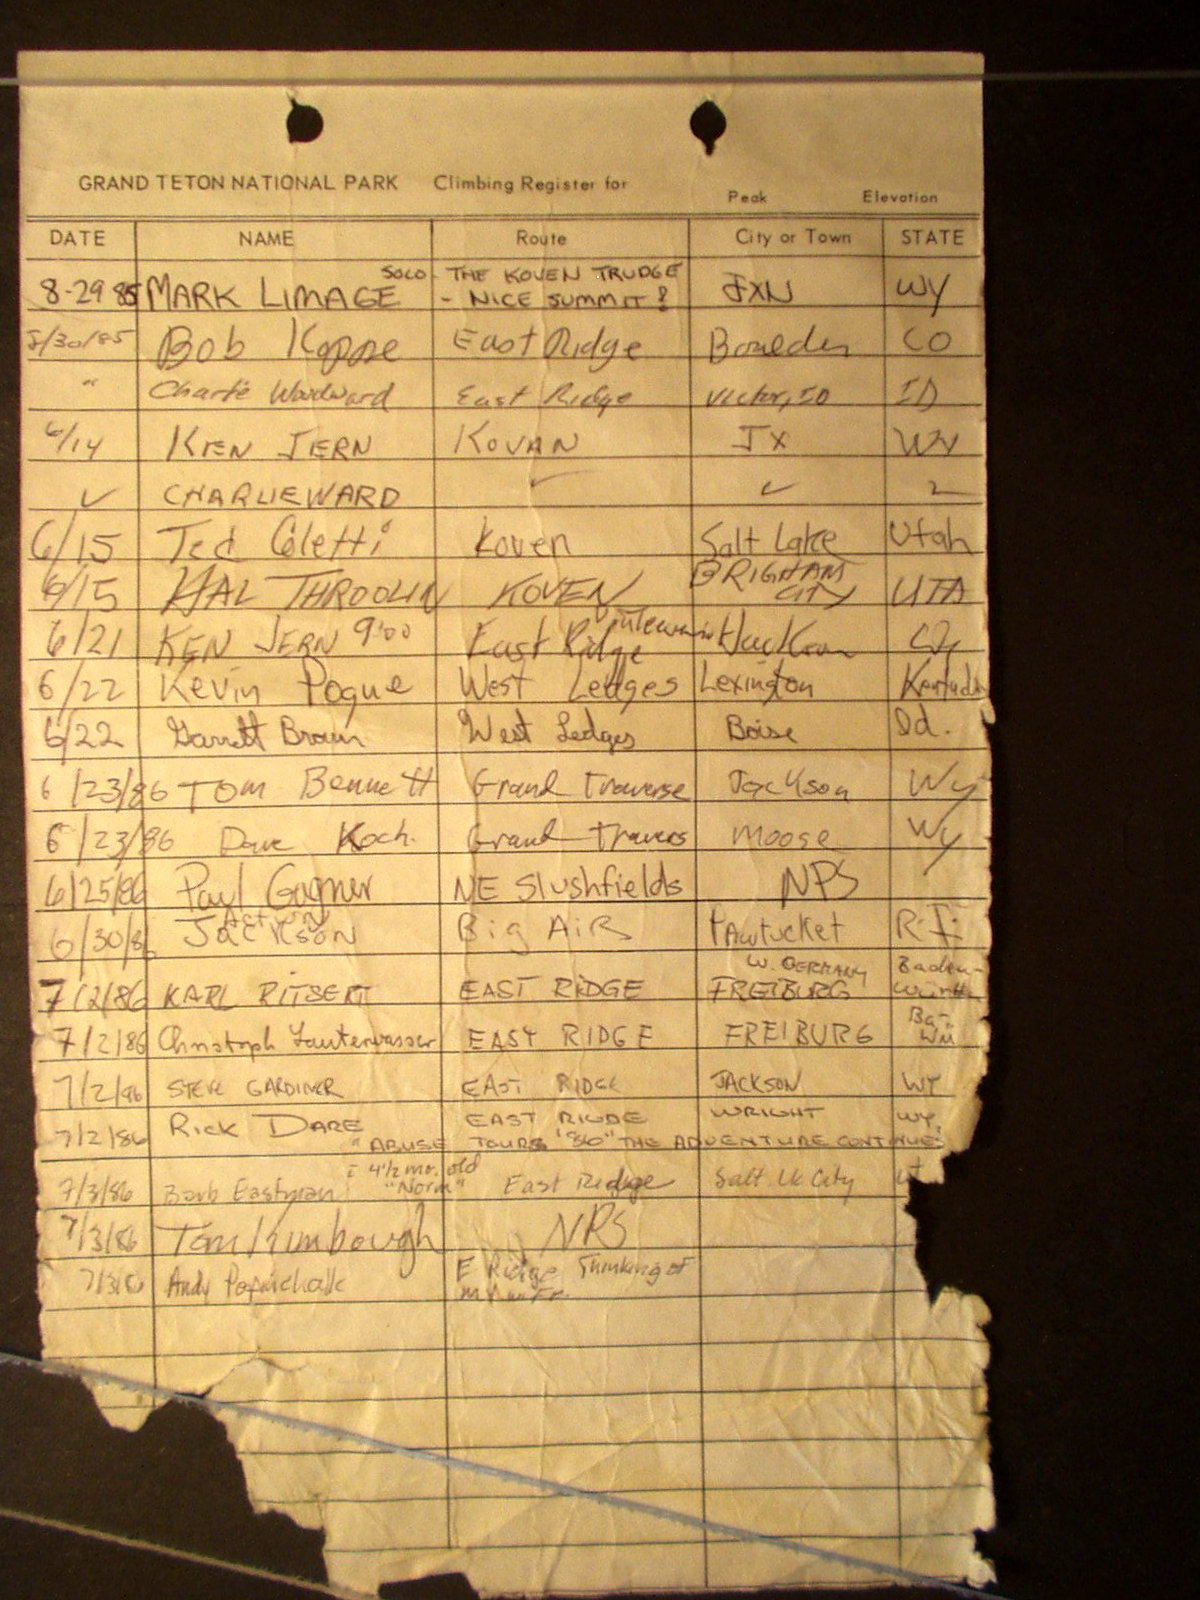 GRAND TETON NATIONAL PARK Climbing Register for Peak Elevation
DATE NAME Route City or Town STATE
8-29 85 MARK LIMAGE SOLO - THE KOVEN TRUDGE - NICE SUMMIT! JXN WY
8/30/85 Bob East Ridge Boulder CO
" Charlie Woodward East Ridge Victor, ID ID
6/14 KEN JERN KOVAN JX WY
✓ CHARLIE WARD ✓ ✓ ✓
6/15 Ted Coletti Koven Salt Lake Utah
6/15 HAL THROOLIN KOVEN BRIGHAM CITY UTA
6/21 KEN JERN 9:00 East Ridge Jackson Wy
6/22 Kevin Pogue West Ledges Lexington Kentucky
6/22 Garrett Brown West Ledges Boise Id.
6/23/86 Tom Bennett Grand Traverse Jackson Wy
6/23/86 Dave Koch. Grand Travers Moose Wy
6/25/86 Paul Gagner NE Slushfields NPS
6/30/86 Action Jackson Big AiR PAwtucket R.I.
7/2/86 KARL RITSERT EAST RIDGE W. GERMANY FREIBURG Baden-Württ
7/2/86 Christoph Lauterwasser EAST RIDGE FREIBURG Ba-Wü
7/2/86 STEVE GARDINER EAST RIDGE JACKSON WY
7/2/86 RICK DARE EAST RIGDE WRIGHT WY.
"ABUSE TOURS '86" THE ADVENTURE CONTINUES
7/3/86 Barb Eastman + 4 1/2 mo. old "Norm" East Ridge Salt Lk City Ut
7/3/86 Tom Kimbrough NPS
7/3/86 Andy E Ridge Thinking of